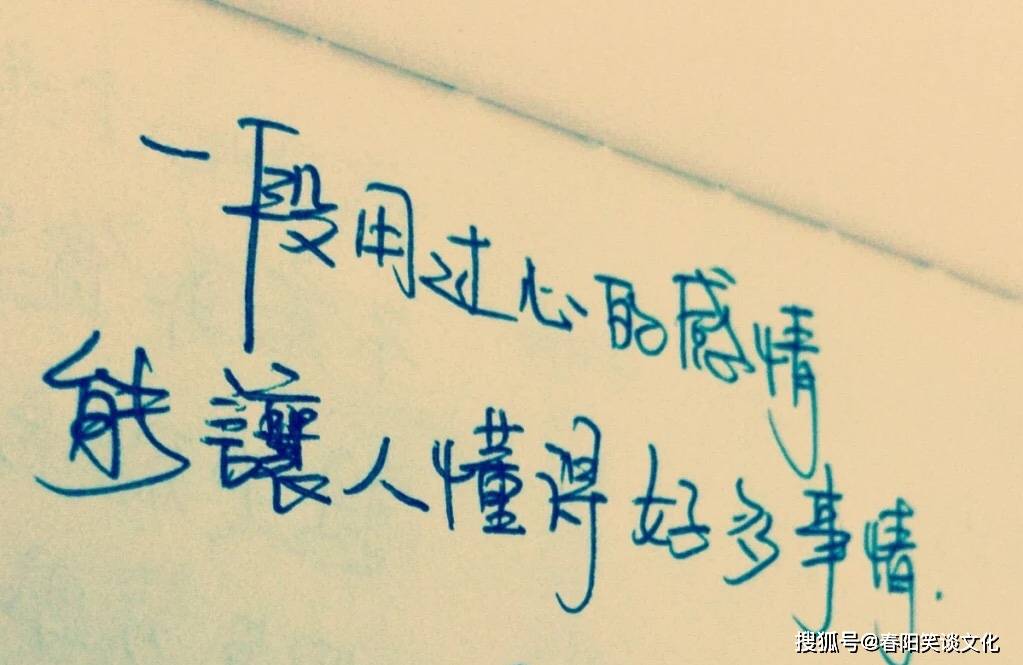 一段用过心的感情
能讓人懂得好多事情.
搜狐号@春阳笑谈文化